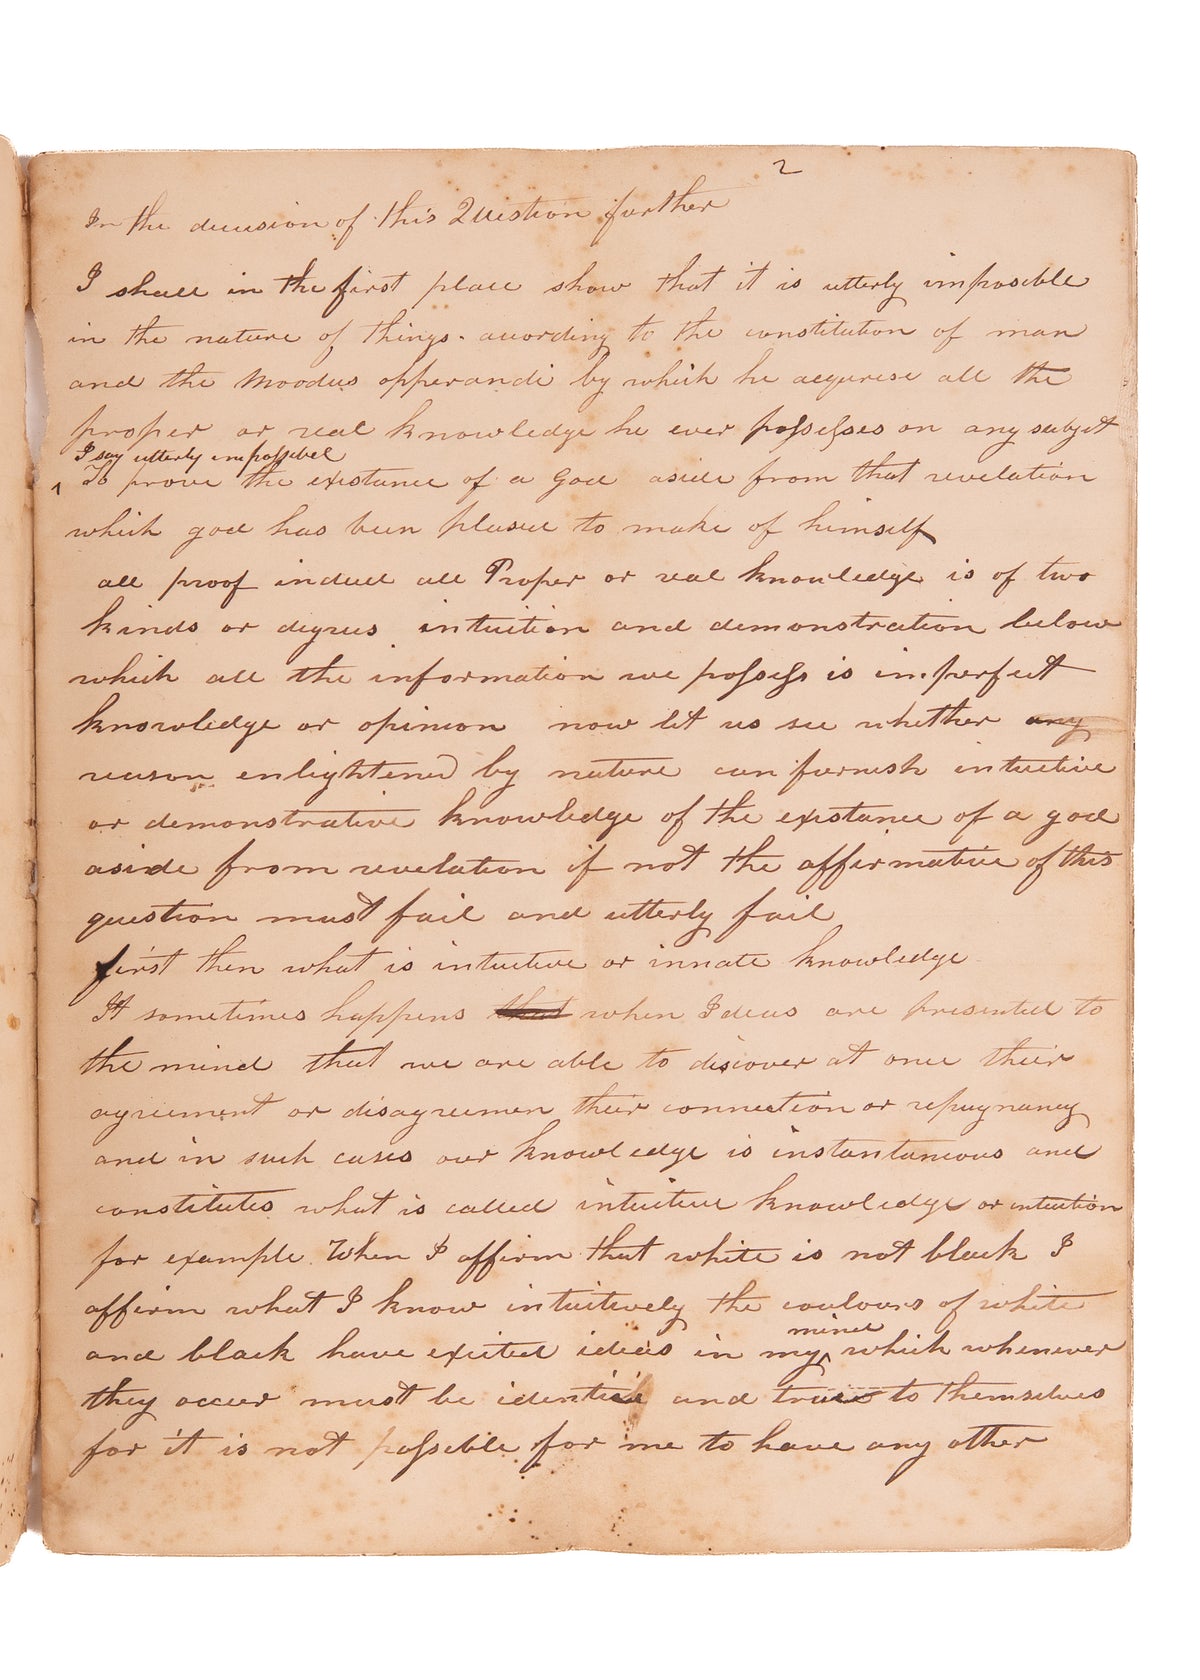 2
In the decision of this Question further
I shall in the first place show that it is utterly imposible
in the nature of things. acording to the constitution of man
and the Moodus opperandi by which he aequrese all the
proper or real knowledge he ever possesses on any subject
I say utterly impossibel
^ To prove the existance of a God aside from that revelation
which god has been pleased to make of himself
all proof indeed all Proper or real knowledge is of two
kinds or degrees intuition and demonstration below
which all the information we possess is imperfect
knowledge or opinion now let us see whether any
reason enlightened by nature can furnish intuitive
or demonstrative knowledge of the existance of a god
aside from revelation if not the affirmative of this
question must fail and utterly fail
first then what is intuitive or innate knowledge
It sometimes happens that when Ideas are presented to
the mind that we are able to discover at once their
agreement or disagreemen their connection or repugnancy
and in such cases our knowledge is instantaneous and
constitutes what is called intuitive knowledge or intuition
for example When I affirm that white is not black I
affirm what I know intuitively the coulours of white
mind
and black have exited ideas in my ^ which whenever
they occur must be identical and true to themselves
for it is not possible for me to have any other